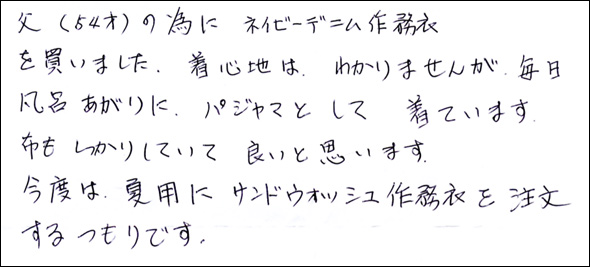 父(54才)の為に ネイビーデニム作務衣
を買いました. 着心地は. わかりませんが. 毎日
風呂あがりに. パジャマとして 着ています.
布もしっかりしていて 良いと思います.
今度は. 夏用に サンドウォッシュ作務衣を注文
するつもりです.